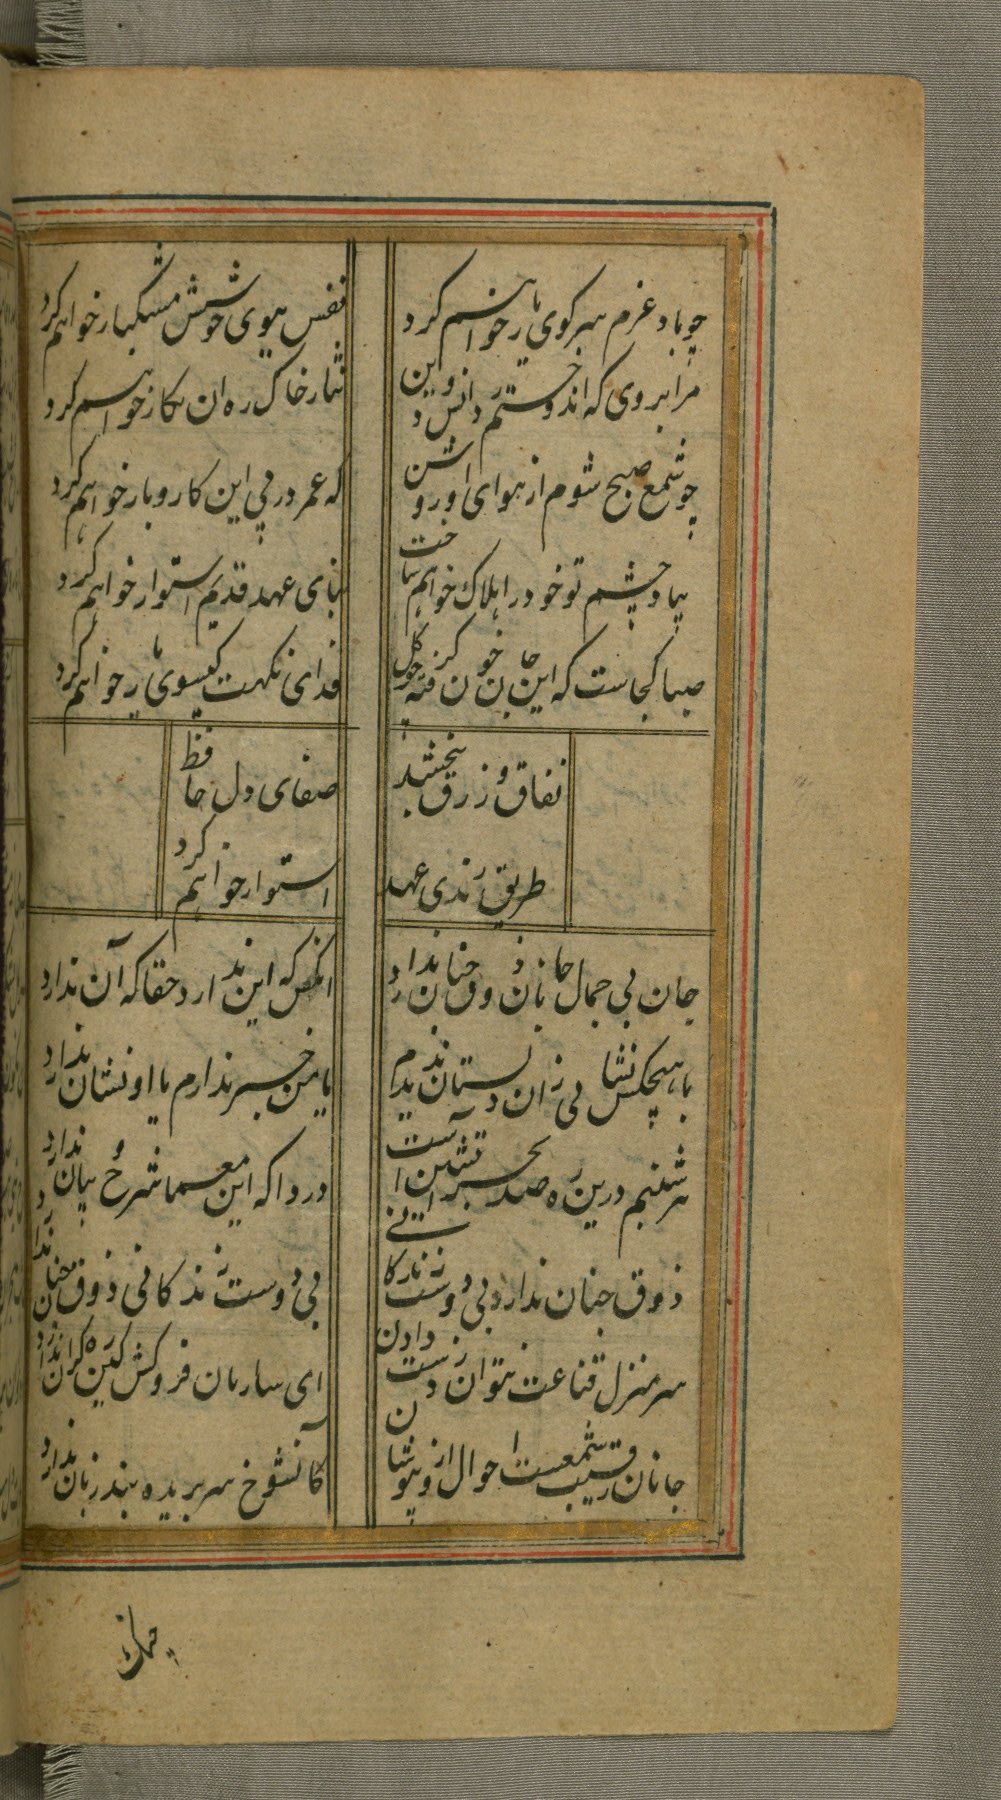 چو باد عزم سر کوی یار خواهم کرد
نفس ببوی خوشش مشکبار خواهم کرد
هر آبروی که اندوختم ز دانش و دین
نثار خاک ره ان نکار خواهم کرد
چو شمع صبح شوم از هوای او روشن
که عمر در پی این کار و بار خواهم کرد
بیاد چشم تو خود را هلاک خواهم ساخت
بنای عهد قدیم استوار خواهم کرد
صبا کجاست که این جان خون کرفته چو کل
فدای نکهت کیسوی یار خواهم کرد
نفاق و زرق نبخشد
صفای دل حافظ
طریق رندی عهد
استوار خواهم کرد
جان بی جمال جانان ذوق جنان ندارد
انکس که این ندارد حقا که آن ندارد
با هیچکس نشانی زان دلستان ندیدم
یا من خبر ندارم یا او نشان ندارد
هر شبنم درین ره صد بحر آتشین است
دردا که این معما شرح و بیان ندارد
ذوق جنان ندارد بی دوست زندکانی
بی دوست زندکانی ذوق جنان ندارد
سر منزل قناعت نتوان ز دست دادن
ای ساربان فروکش کین ره کران ندارد
جانان رقیب شمعست احوال ازو بپوشان
کان شوخ سر بریده بند زبان ندارد
چنک